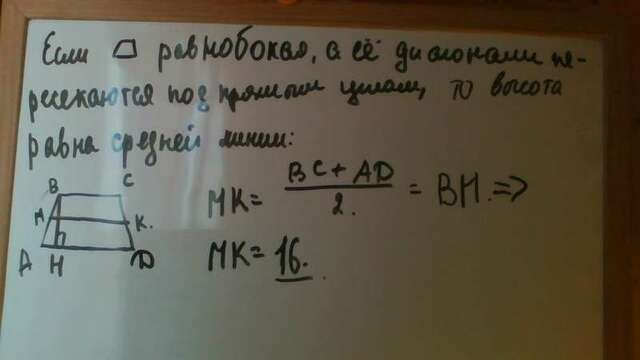 Если ▱ равнобокая, а её диагонали пе-
ресекаются под прямым углом, то высота
равна средней линии:
B C
M K.
A H D
MK = BC + AD / 2. = BH. ⇒
MK = 16.